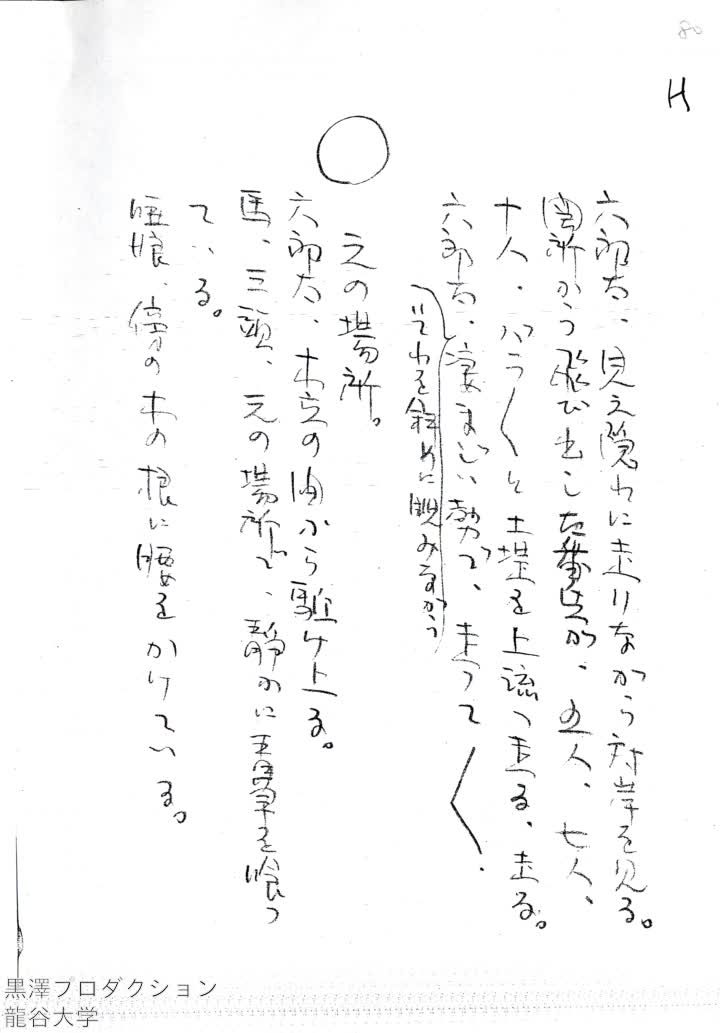 80
H
六郎太、見え隠れに走りなから対岸を見る。
関所から飛び出した番兵が、五人、七人、
十人、バラ〱と土堤を上流へ走る、走る。
六郎太、凄まじい勢で、走って〱。
それを斜めに睨みながら
元の場所。
六郎太、木立の間から駈け上る。
馬、三頭、元の場所で、静かに青草を喰っ
ている。
唖娘、傍の木の根に腰をかけている。
黒澤プロダクション
龍谷大学